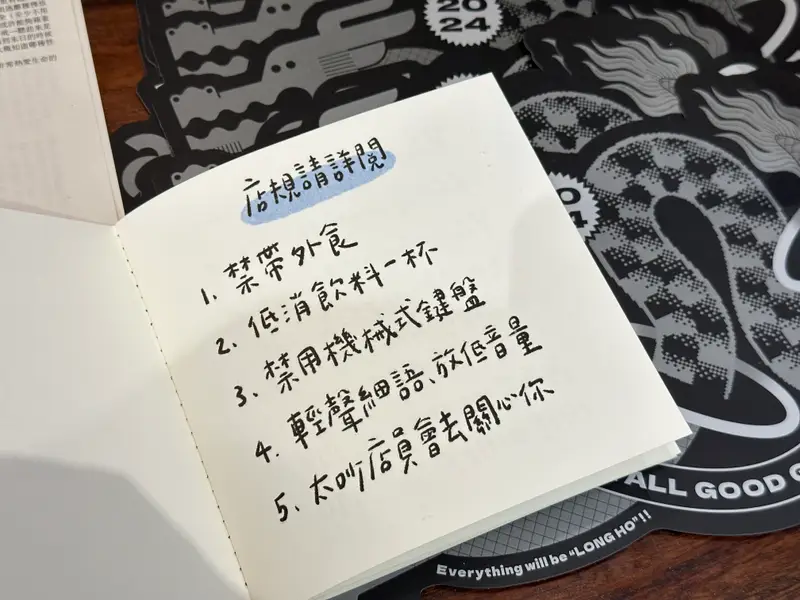 店規請詳閱
1. 禁帶外食
2. 低消飲料一杯
3. 禁用機械式鍵盤
4. 輕聲細語、放低音量
5. 太吵店員會去關心你
20
24
ALL GOOD
Everything will be "LONG HO"!!